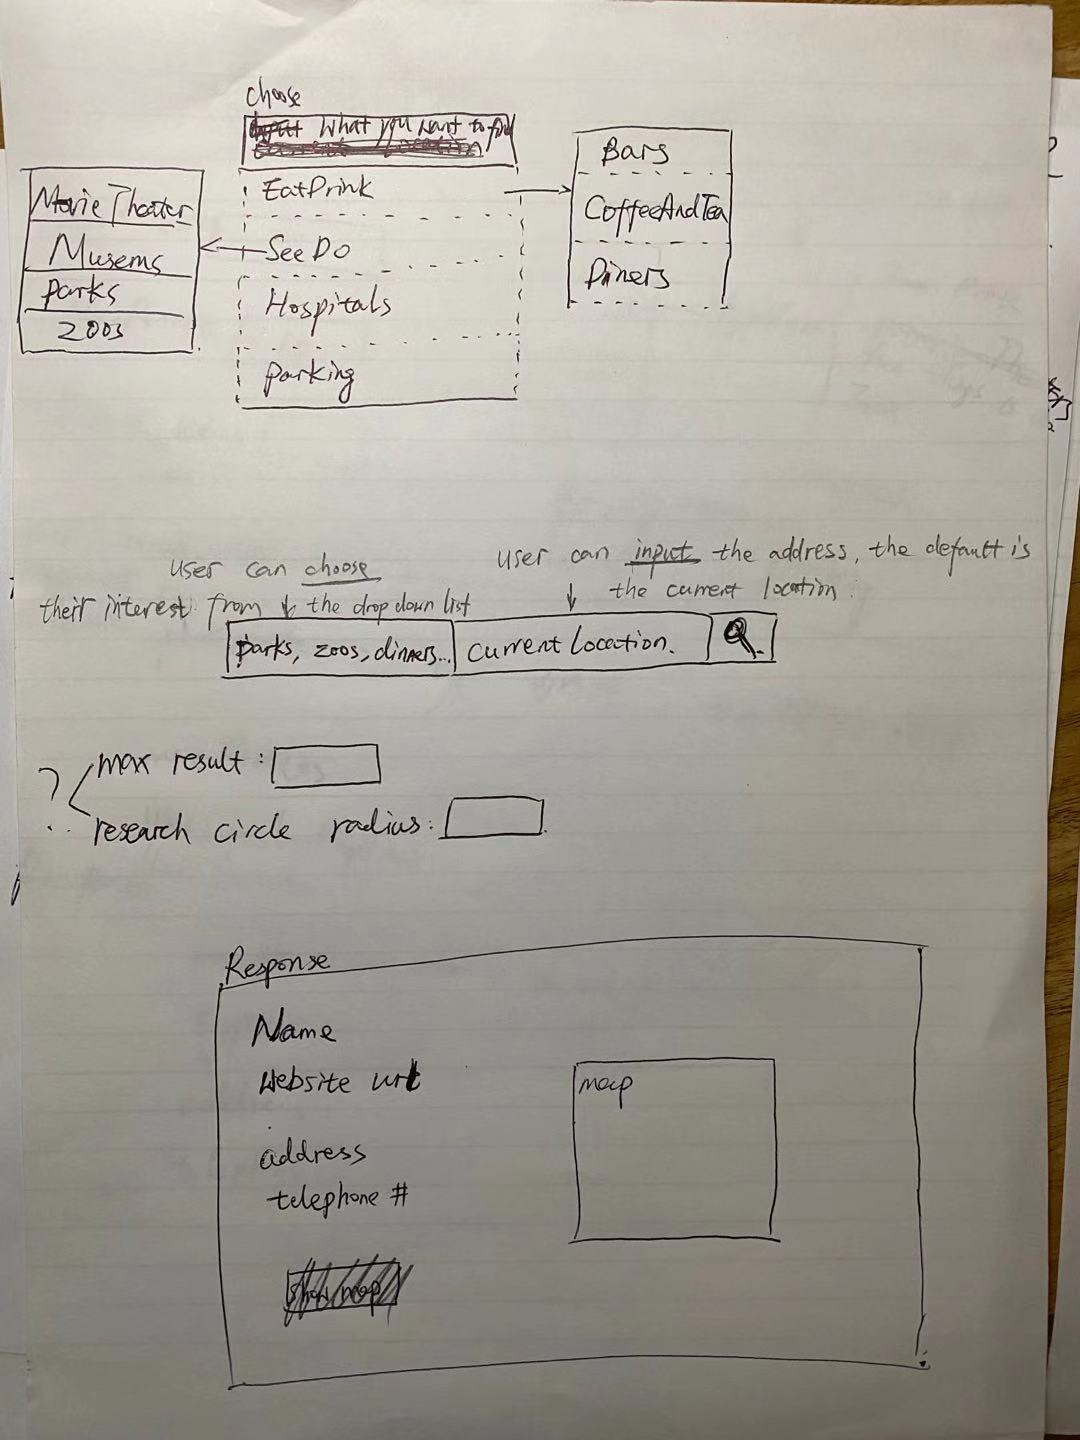 choose
what you want to find
EatDrink
See Do
Hospitals
parking
Movie Theater
Musems
parks
zoos
Bars
CoffeeAndTea
Diners
user can choose
their interest from the drop down list
user can input the address, the default is
the current location.
parks, zoos, dinners...
current location.
?
max result :
research circle radius:
Response
Name
Website url
address
telephone #
map
show map